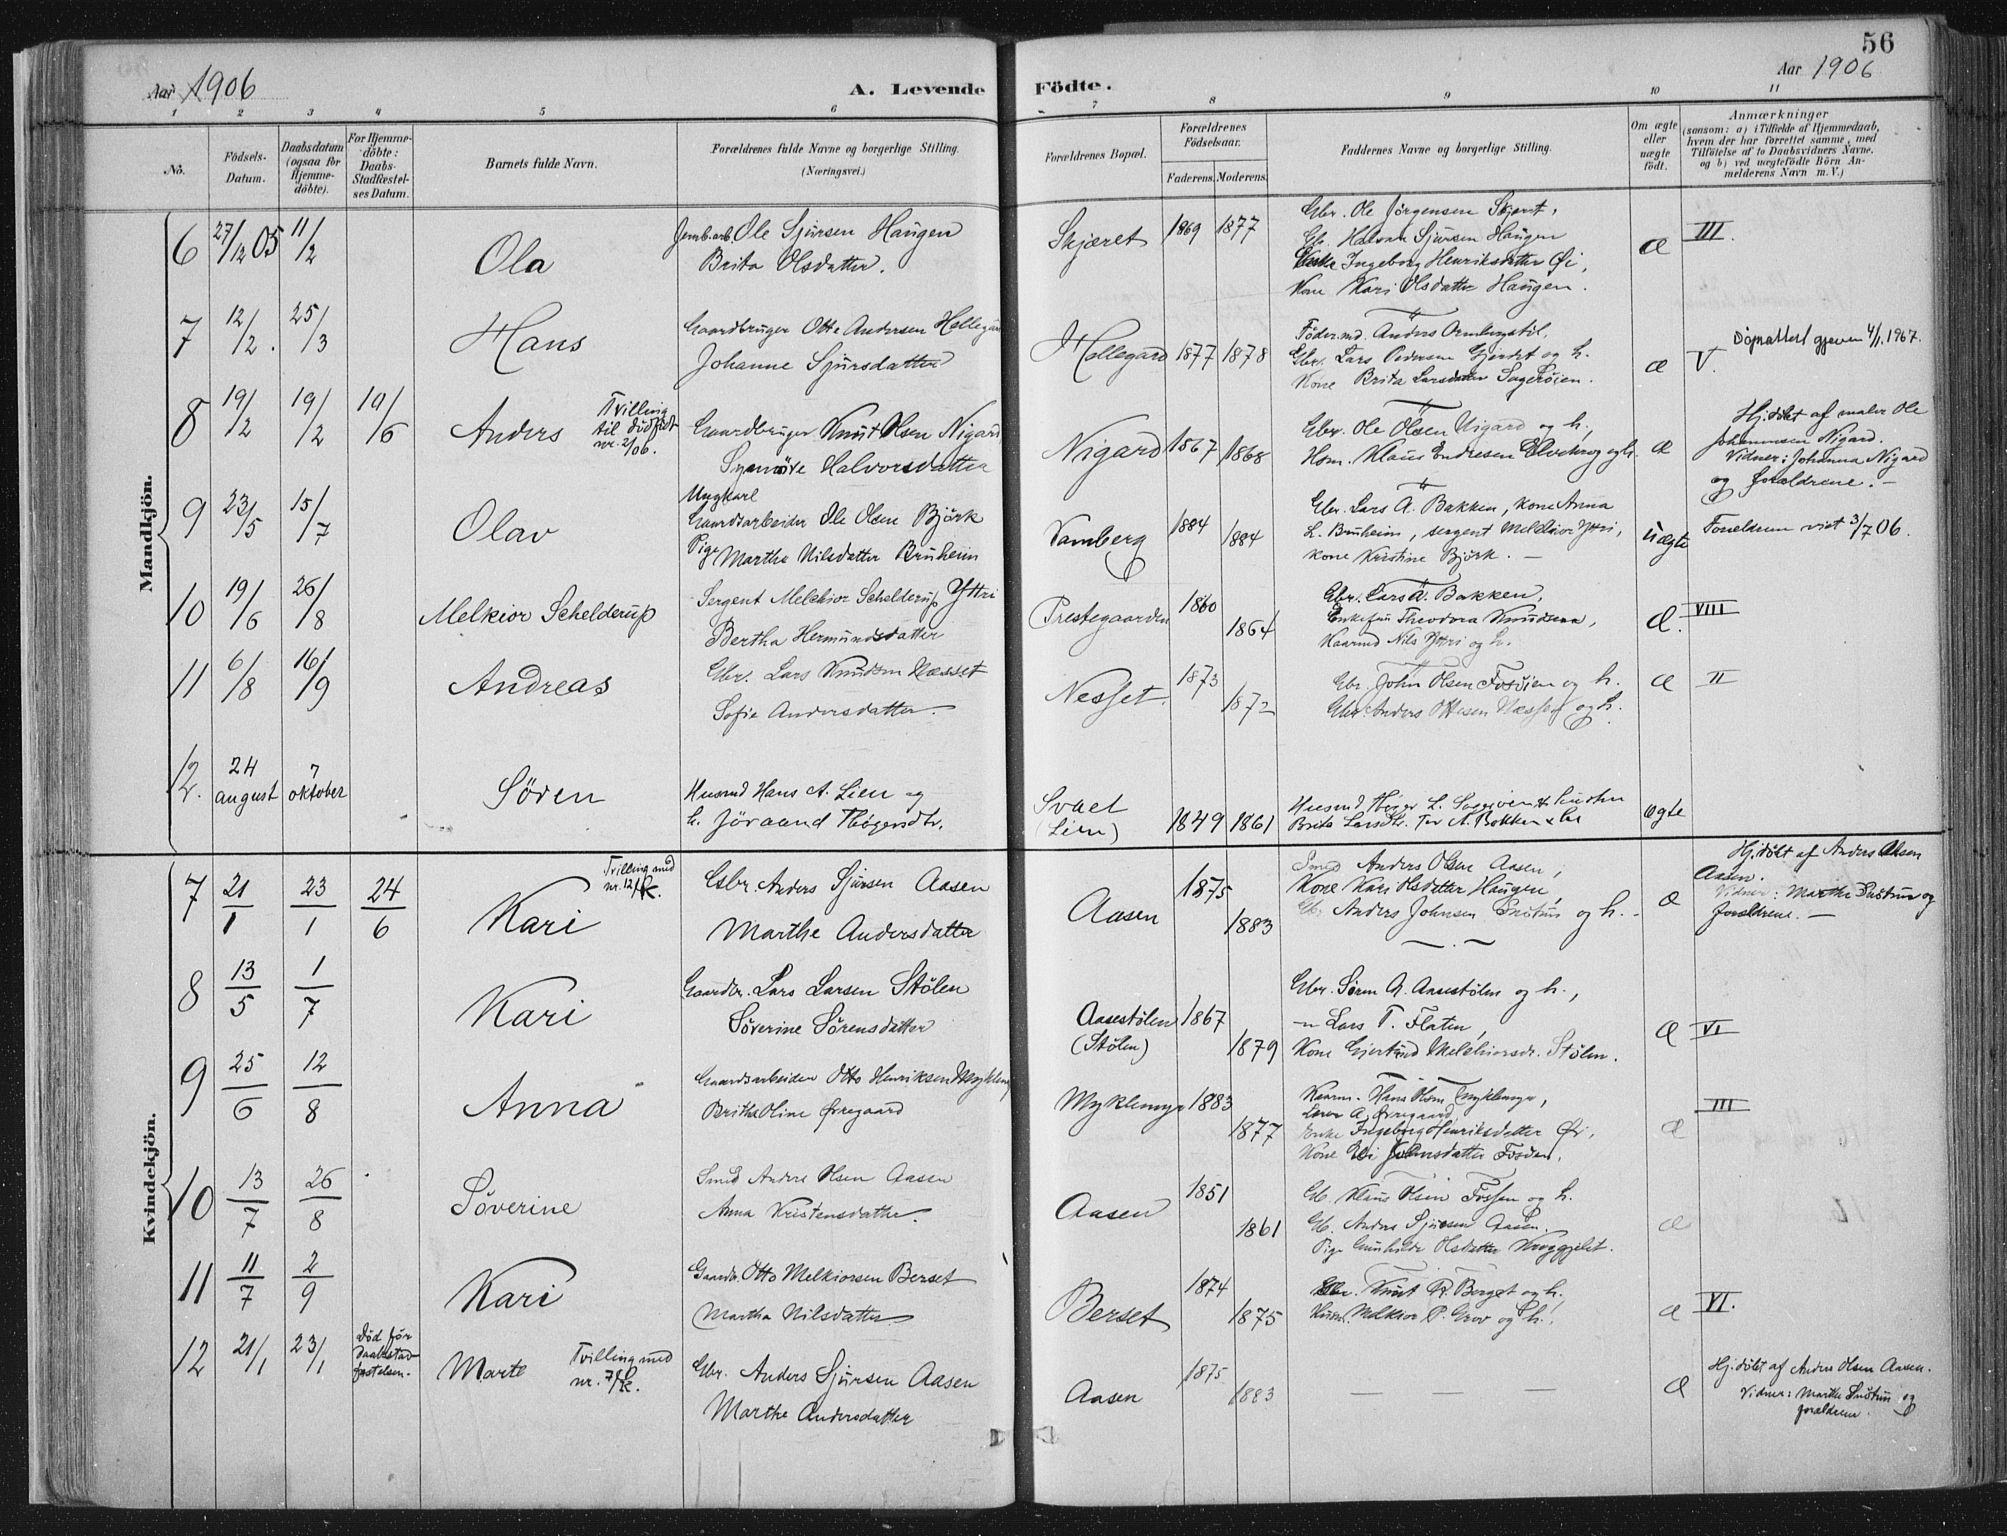 56
Aar 1906
A. Levende Födte.
Aar 1906
1 2 3 4 5 6 7 8 9 10 11
No.
Födsels-Datum.
Daabsdatum (ogsaa for Hjemme-döbte).
For Hjemme-döbte: Daabs-Stadfæstel-ses Datum.
Barnets fulde Navn.
Forældrenes fulde Navne og borgerlige Stilling. (Næringsvei.)
Forældrenes Bopæl.
Forældrenes Födselsaar.
Faderens. Moderens.
Faddernes Navne og borgerlige Stilling.
Om ægte eller uægte födt.
Anmærkninger
(saasom: a) i Tilfælde af Hjemmedaab,
hvem der har forrettet samme, med
Tilföielse af to Daabsvidners Navne,
og b) ved uægtefödte Börn An-
melderens Navn m. V.)
Mandkjön.
6 27/12 05 11/2 Ola
Ole Sjursen Haugen
Brita Olsdatter.
Skjæret 1869 1877
Gbr. Ole Jørgensen Skjæret,
Gb. Halvar Sjursen Haugen
Enke Ingeborg Henriksdatter Øi,
Kone Kari Olsdatter Haugen.
æ III
7 12/2. 25/3 Hans
Gaardbruger Otte Andersen Hellegard
Johanne Sjursdatter
Hellegard 1877 1878
Føderaad. Anders
Gbr. Lars Pedersen Gjerdet og h.
Kone Brita Larsdatter Sagerøien.
æ V.
Døpeattest gjeven 4/1.1967.
8 19/2 19/2 10/6 Anders
Tvilling til dødfødt nr. 2/06.
Gaardbruger Knut Olsen Nigard
Synnøve Halvorsdatter
Nigard 1867 1868
Gbr. Ole Olsen Nigard og h.,
Hsm. Klaus Endresen Elvekrog og h.
æ
Hj. døbt af maler Ole
Johannesen Nigard.
Vidner: Johanna Nigard
og forældrene. -
9 23/5 15/7 Olav
Ungkarl
Gaardsarbeider Ole Olsen Björk
Pige Martha Nilsdatter Bruheim
Vamberg 1884 1884
Gbr. Lars A. Bakken, Kone Anna
L. Bruheim, sergent Melchior Yttri,
kone Kristine Björk. -
Uægte
Forældrene viet 3/7 06.
10 19/6 26/8 Melkior Schelderup
Sergent Melchior Schelderup Yttri
Bertha Hermundsdatter
Prestegaarden 1860 1864
Gbr. Lars A. Bakken,
Enkefru Theodora Knudsen,
Kaarmd Nils Yttri og h.
æ. VIII
11 6/8 16/9 Andreas
Gbr. Lars Knudsen Næsset
Sofie Andersdatter.
Nesset. 1873 1872
Gbr. John Olsen Fosøien og h.
Gbr Anders Ottesen Næsset og h.
æ II
12. 24 august 7 oktober Sören
Husmd Hans A. Lien og
h. Jöraand Thögersdtr.
Svaet (Lien) 1849 1861
Ægte
Kvindekjön.
7 21/1 23/1 24/6 Kari
Tvilling med nr. 12/k.
Gbr. Anders Sjursen Aasen
Marthe Andersdatter
Aasen 1875 1883
Smed Anders Olsen Aasen,
Kone Kari Olsdatter Haugen,
Gb. Anders Johnsen Snøtun og h.
æ
Hj. døbt af Anders Olsen
Aasen.
Vidner: Marthe Snøtun og
forældrene. -
8 13/5 1/7 Kari
Gaardbr. Lars Larsen Stølen
Søverine Sørensdatter
Aasestølen (Stølen) 1867 1879
Gbr. Søren A. Aasestølen og h.,
-"- Lars T. Flaten,
Kone Gjertrud Melchiorsdr. Stølen.
æ VI
9 25/6 12/8 Anna
Gaardsarbeider Otto Henriksen Myklemyr
Britha Oline Øvregaard
Myklemyr 1883 1877
Kaarm. Hans Olsen Myklemyr,
A. Øvregaard,
Enke Ingeborg Henriksdatter Øi,
Kone Johnsdatter Fosøien.
æ III
10 13/7 26/8 Søverine
Smed Anders Olsen Aasen
Anna Kristensdatter.
Aasen 1851 1861
Gb. Klaus Olsen Fossen og h.
Gb. Anders Sjursen Aasen.
Pige Gunhilde Olsdatter
æ
11 11/7 2/9 Kari
Gaardbr. Otto Melkiorsen Berset
Martha Nilsdatter
Berset 1874 1875
Gbr. Knut R. Berget og h.
Husm. Melkior P. Grov og h.
æ VI.
12 21/1 23/1
Død før Daabsstadfæstelsen.
Marte
Tvilling med nr. 7/k.
Gbr. Anders Sjursen Aasen
Marthe Andersdatter
Aasen 1875 1883
— — —
æ
Hj. døbt af Anders Olsen Aasen.
Vidner: Marthe Snøtun og
forældrene.